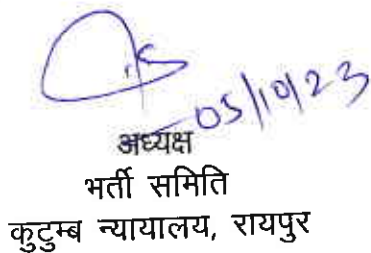 05/10/23
अध्यक्ष
भर्ती समिति
कुटुम्ब न्यायालय, रायपुर